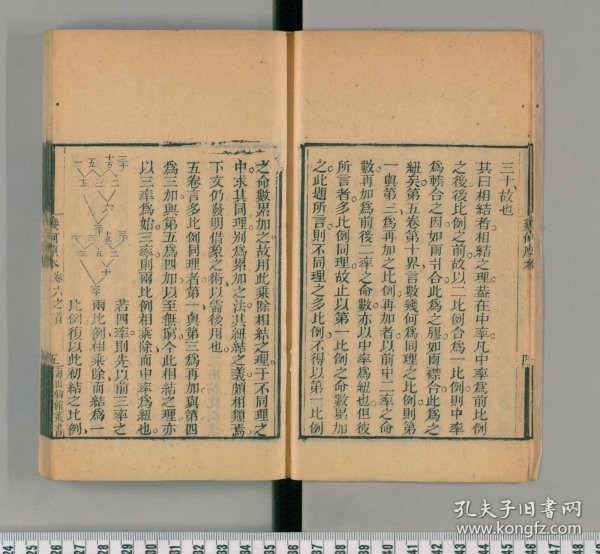 三十、故也
其曰相結者、相結之理、蓋在中率、凡中率爲前比例
之後、後比例之前、故以二比例合爲一比例、則中率
爲輳合之因、如兩弓合、此爲之膠、如兩襟合、此爲之
紐矣、第五卷第十界、言數幾何爲同理之比例、則第
一與第三、爲再加之比例、再加者、以前中二率之命
數、再加爲前後二率之命數、亦以中率爲紐也、但彼
所言者、多比例同理、故止以第一比例之命數累加
之、此題所言、則不同理之多比例、不得以第一比例
四
之命數累加之、故用此乘除相結之理、于不同理之
中、求其同理、別爲累加之法、其紐結之義、頗相類焉、
下文仍發明借象之術、以需後用也、
五卷言多比例同理者、第一與第三爲再加、與第四
爲三加、與第五爲四加、以至無窮、今此相結之理、亦
以三率爲始、三率則兩比例相乘除、而中率爲紐也、
若四率則先以前三率之
兩比例相乘除、而結爲一
比例、復以此初結之比例、
幾何原本 卷六之首
五
海山仙館叢書
孔夫子旧书网
www.kongfz.com
24 25 26 27 28 29 30 31 32 33 34 35 36 37 38 39 40 41 42 43 44 45 46 47 48